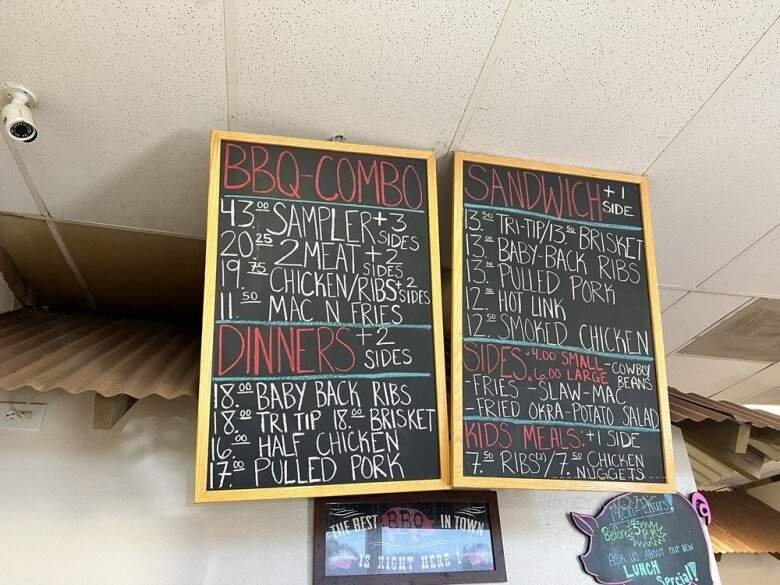 BBQ-COMBO
43.00 SAMPLER +3 SIDES
20.25 2 MEAT +2 SIDES
19.75 CHICKEN/RIBS +2 SIDES
11.50 MAC N FRIES
DINNERS +2 SIDES
18.00 BABY BACK RIBS
18.00 TRI TIP 18.00 BRISKET
16.00 HALF CHICKEN
17.00 PULLED PORK
SANDWICH +1 SIDE
13.50 TRI-TIP/13.50 BRISKET
13. BABY-BACK RIBS
13. PULLED PORK
12. HOT LINK
12.50 SMOKED CHICKEN
SIDES: 4.00 SMALL - COWBOY BEANS
6.00 LARGE
-FRIES -SLAW-MAC
-FRIED OKRA-POTATO SALAD
KIDS MEALS: +1 SIDE
7.50 RIBS(2)/7.50 CHICKEN NUGGETS
THE BEST BBQ IN TOWN
IS RIGHT HERE!
Mon-Thurs!
Before 3pm
ASK US ABOUT OUR NEW
LUNCH
Special!